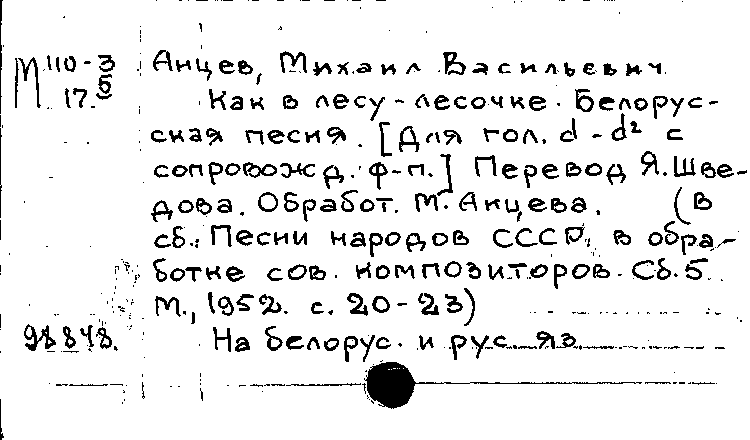 М 110-3/5 Анцев, Михаил Васильевич
17. Как в лесу-лесочке. Белорус-
ская песня. [Для гол. d-d² с
сопровожд. ф-п.] Перевод Я. Шве-
дова. Обработ. М. Анцева. (В
сб.: Песни народов СССР, в обра-
ботке сов. композиторов. Сб. 5
М., 1952. с. 20-23)
98848. На белорус. и рус яз